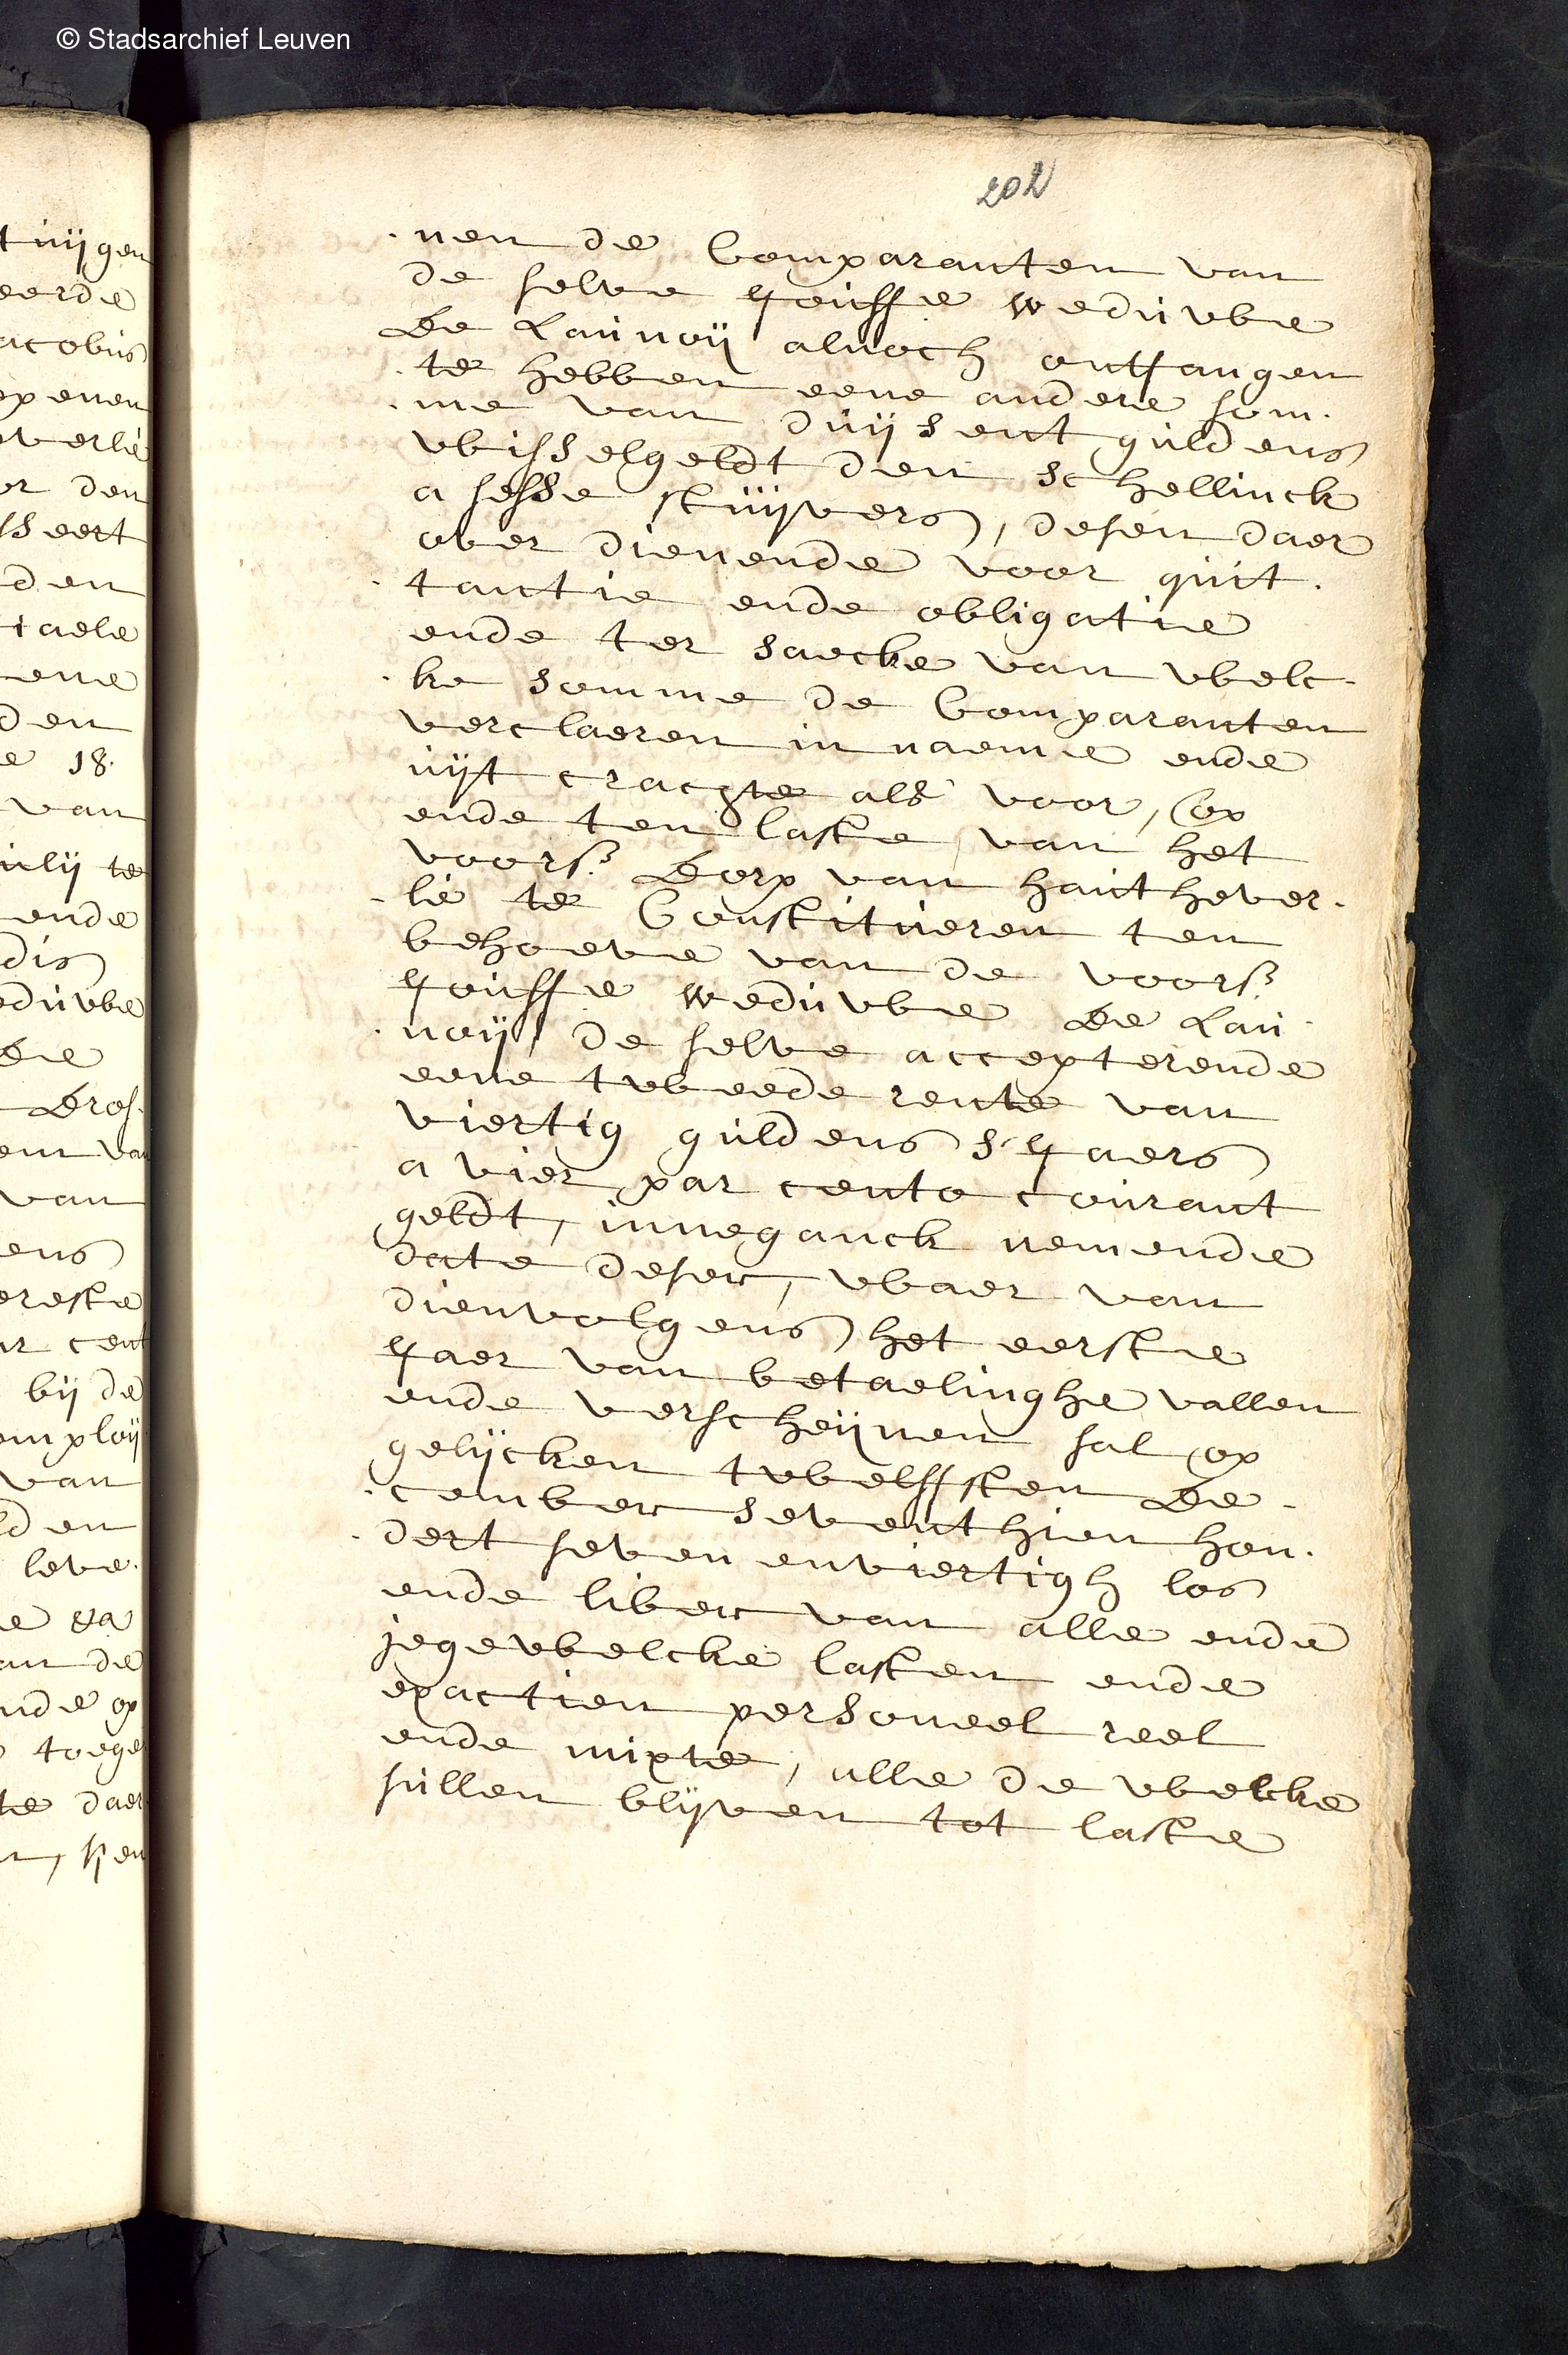 © Stadsarchief Leuven
202
nen de Comparanten van
de selve Jouffe weduwe
De Launoij alnoch ontfangen
te hebben eene andere som
me van duijsent guldens
wisselgeldt den schellinck
a sesse stuijvers, desen daer
over dienende voor quit
tantie ende obligatie
ende ter saecke van welc
ke somme de Comparanten
verclaeren in naeme ende
uijt crachte als voor, op
ende ten laste van het
voors. Dorp van hauthever
lé te Constitueren ten
behoeve van de voors.
Jouffe weduwe De Lau
noij, de selve accepterende
eene tweede rente van
viertig guldens s'jaers
a vier par cento courant
geldt, inneganck nemende
date deser, waer van
dienvolgens het eerste
jaer van betaelinghe vallen
ende verscheijnen sal op
gelijcken twelffsten De
cember seventhien hon
dert sevenenviertigh los
ende liber van alle ende
jegewelcke lasten ende
exactien personeel reel
ende mixte, alle de welcke
sullen blijven tot laste
tuijgen
eerde
acobus
expenen
everlé
or den
sseert
den
taele
eene
den
e 18.
van
ulij te
ende
dis
eduwe
De
Dros
em van
van
ens
ereste
ar cent
bij de
emploij
van
lden
leve
e na
an de
nde op
toege
te daer